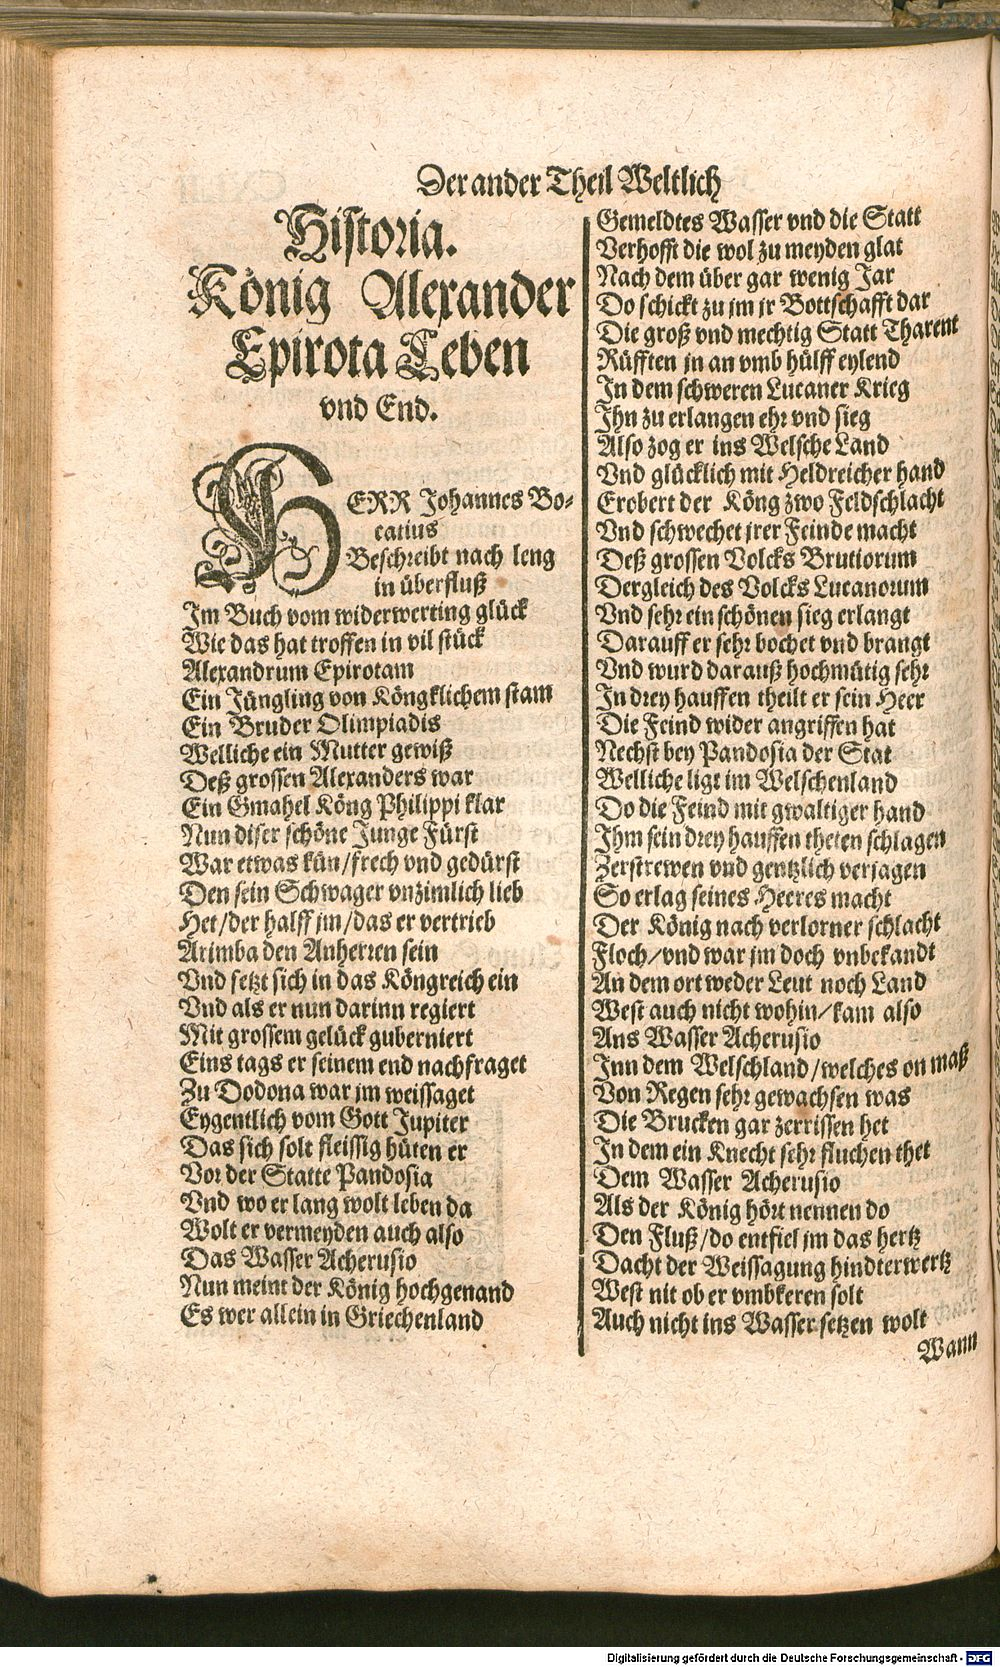 Der ander Theil Weltlich
Historia.
König Alexander
Epirota Leben
vnd End.
HERR Johannes Bo-
catius
Beschreibt nach leng
in überfluß
Im Buch vom widerwerting glück
Wie das hat troffen in vil stück
Alexandrum Epirotam
Ein Jüngling von Köngklichem stam
Ein Bruder Olimpiadis
Welliche ein Mutter gewiß
Deß grossen Alexanders war
Ein Gmahel Köng Philippi klar
Nun diser schöne Junge Fürst
War etwas kün/frech vnd gedürst
Den sein Schwager vnzimlich lieb
Het/der halff jm/das er vertrieb
Arimba den Anherren sein
Vnd setzt sich in das Köngreich ein
Vnd als er nun darinn regiert
Mit grossem gelück guberniert
Eins tags er seinem end nachfraget
Zu Dodona war jm weissaget
Eygentlich vom Gott Jupiter
Das sich solt fleissig hüten er
Vor der Statte Pandosia
Vnd wo er lang wolt leben da
Wolt er vermeyden auch also
Das Wasser Acherusio
Nun meint der König hochgenand
Es wer allein in Griechenland
Gemeldtes Wasser vnd die Statt
Verhofft die wol zu meyden glat
Nach dem über gar wenig Jar
Do schickt zu jm jr Bottschafft dar
Die groß vnd mechtig Statt Tharent
Rüfften jn an vmb hülff eylend
In dem schweren Lucaner Krieg
Ihn zu erlangen ehr vnd sieg
Also zog er ins Welsche Land
Vnd glücklich mit Heldreicher hand
Erobert der Köng zwo Feldschlacht
Vnd schwechet jrer Feinde macht
Deß grossen Volcks Brutiorum
Dergleich des Volcks Lucanorum
Vnd sehr ein schönen sieg erlangt
Darauff er sehr bochet vnd brangt
Vnd wurd darauß hochmütig sehr
In drey hauffen theilt er sein Heer
Die Feind wider angriffen hat
Nechst bey Pandosia der Stat
Welliche ligt im Welschenland
Do die Feind mit gwaltiger hand
Ihm sein drey hauffen theten schlagen
Zerstrewen vnd gentzlich verjagen
So erlag seines Heeres macht
Der König nach verlorner schlacht
Floch/vnd war jm doch vnbekandt
An dem ort weder Leut noch Land
West auch nicht wohin/kam also
Ans Wasser Acherusio
Inn dem Welschland/welches on maß
Von Regen sehr gewachsen was
Die Brucken gar zerrissen het
In dem ein Knecht sehr fluchen thet
Dem Wasser Acherusio
Als der König hört nennen do
Den Fluß/do entfiel jm das hertz
Dacht der Weissagung hindterwertz
West nit ob er vmbkeren solt
Auch nicht ins Wasser setzen wolt
Wann
Digitalisierung gefördert durch die Deutsche Forschungsgemeinschaft - DFG